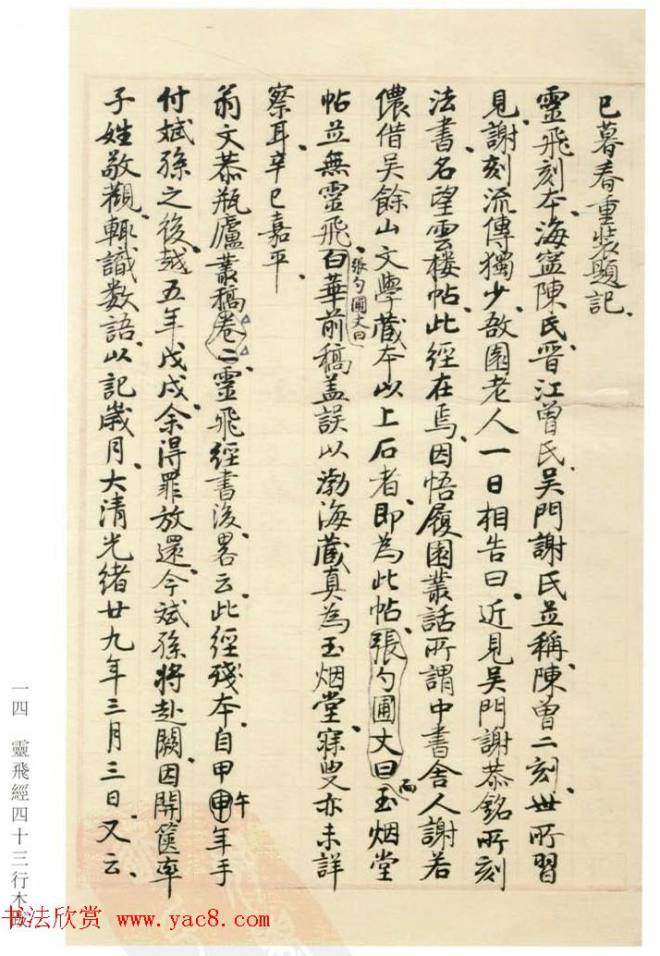 巳暮春重裝題記
靈飛刻本海寧陳氏晉江曾氏吳門謝氏並稱陳曾二刻世所習
見謝刻流傳獨少敔園老人一日相告曰近見吳門謝恭銘所刻
法書名望雲樓帖此經在焉因悟履園叢話所謂中書舍人謝若
儂借吳餘山文學藏本以上石者即為此帖張勺圃丈曰而玉烟堂
帖並無靈飛張勺圃丈曰白華前稿蓋誤以渤海藏真為玉烟堂寐叟亦未詳
察耳辛巳嘉平
翁文恭瓶廬叢稿卷二靈飛經書後畧云此經殘本自甲申午年手
付斌孫之後越五年戊戌余得罪放還今斌孫將赴闕因開篋率
子姓敬觀輒識數語以記歲月大清光緒廿九年三月三日又云
一四 靈飛經四十三行本跋
书法欣赏 www.yac8.com